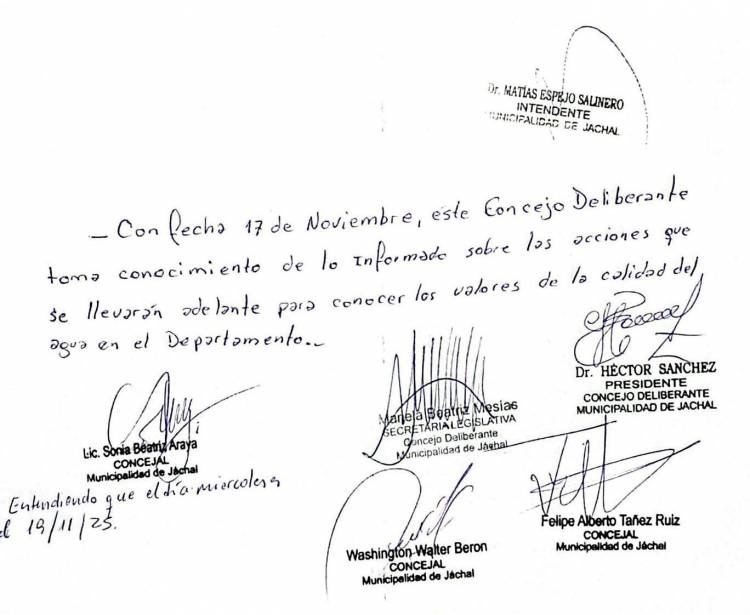 Dr. MATÍAS ESPEJO SALINERO
INTENDENTE
MUNICIPALIDAD DE JACHAL
– Con fecha 17 de Noviembre, este Concejo Deliberante
toma conocimiento de lo Informado sobre las acciones que
se llevarán adelante para conocer los valores de la calidad del
agua en el Departamento.-
Dr. HÉCTOR SANCHEZ
PRESIDENTE
CONCEJO DELIBERANTE
MUNICIPALIDAD DE JACHAL
Mariela Beatriz Mesias
SECRETARIA LEGISLATIVA
Concejo Deliberante
Municipalidad de Jáchal
Lic. Sonia Beatriz Araya
CONCEJAL
Municipalidad de Jáchal
Entendiendo que el día miercoles
el 19/11/25.
Felipe Alberto Tañez Ruiz
CONCEJAL
Municipalidad de Jáchal
Washington Walter Beron
CONCEJAL
Municipalidad de Jáchal